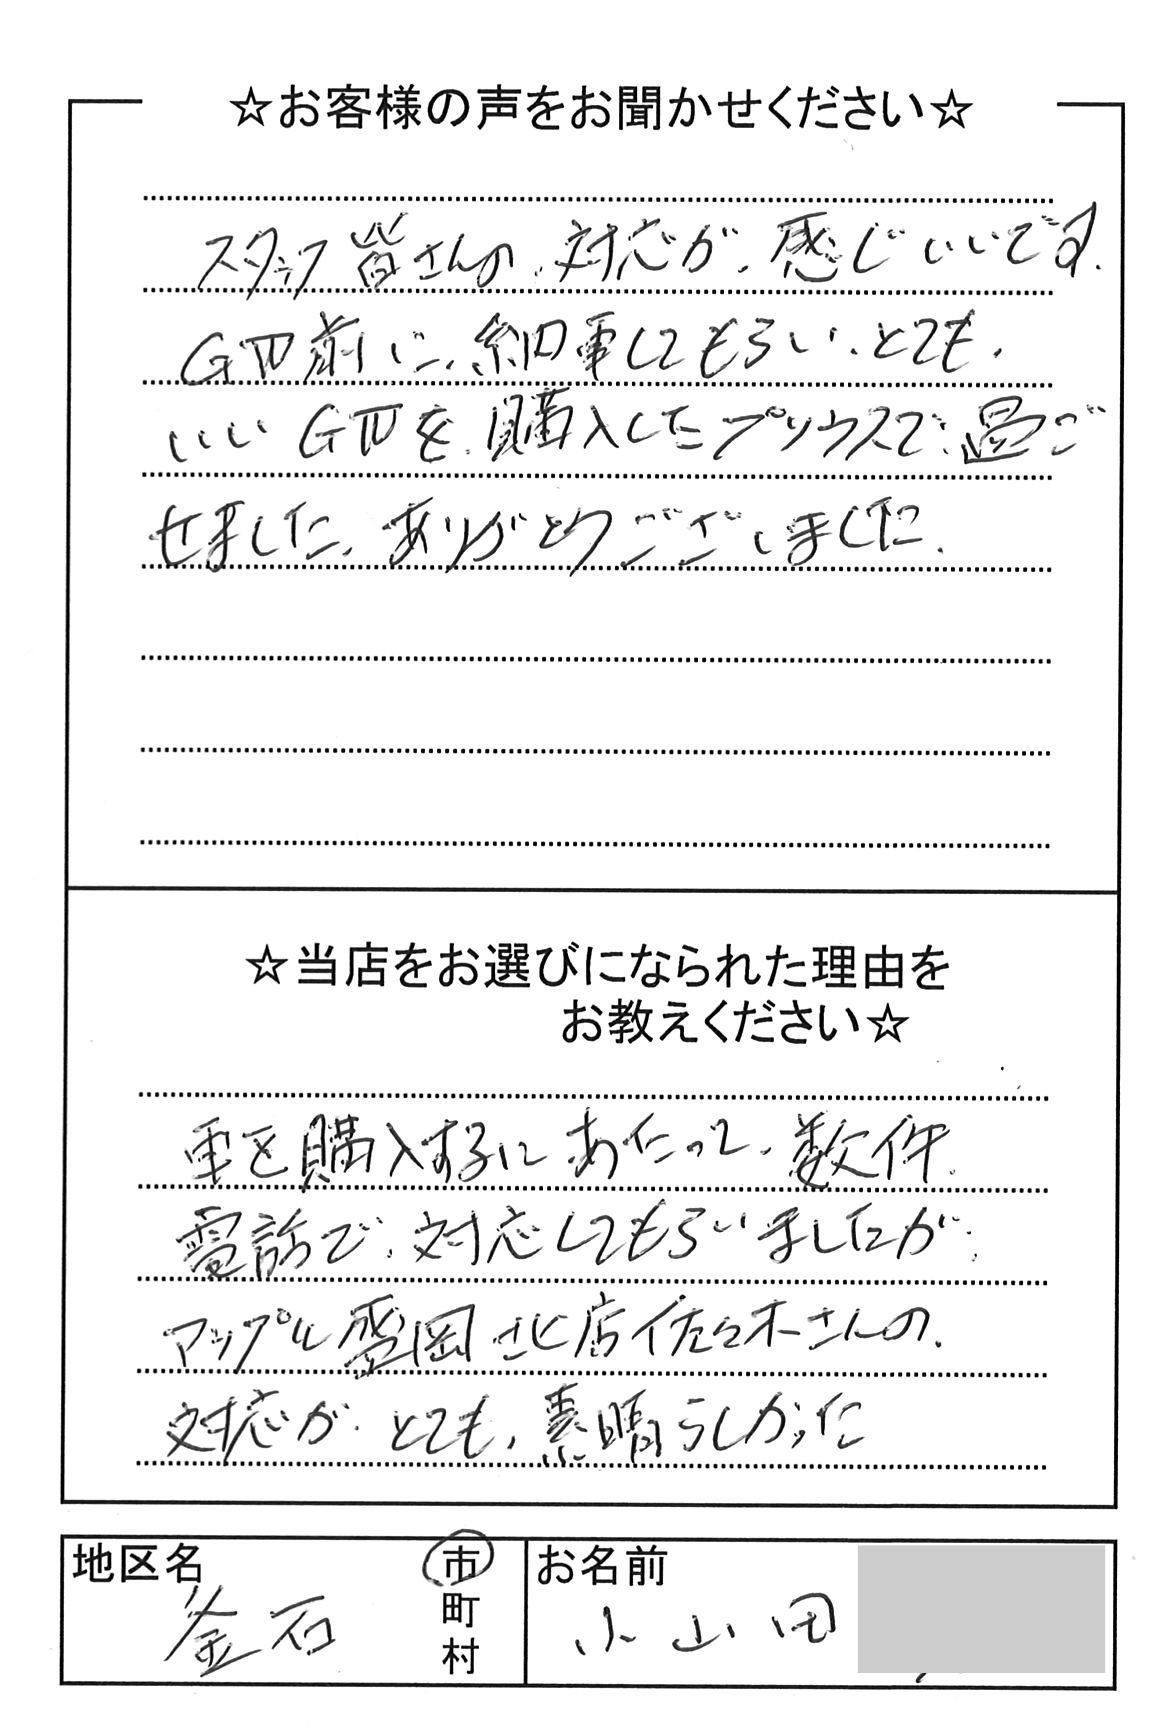 ☆お客様の声をお聞かせください☆
スタッフ皆さんの、対応が、感じいいです.
GW前に、納車してもらい、とても、
いいGWを、購入したプリウスで、過ご
せました、ありがとうございました.
☆当店をお選びになられた理由を
お教えください☆
車を購入するにあたって、数件、
電話で、対応してもらいましたが、
アップル盛岡北店佐々木さんの、
対応が、とても、素晴らしかった
地区名
釜石
市
町
村
お名前
小山田